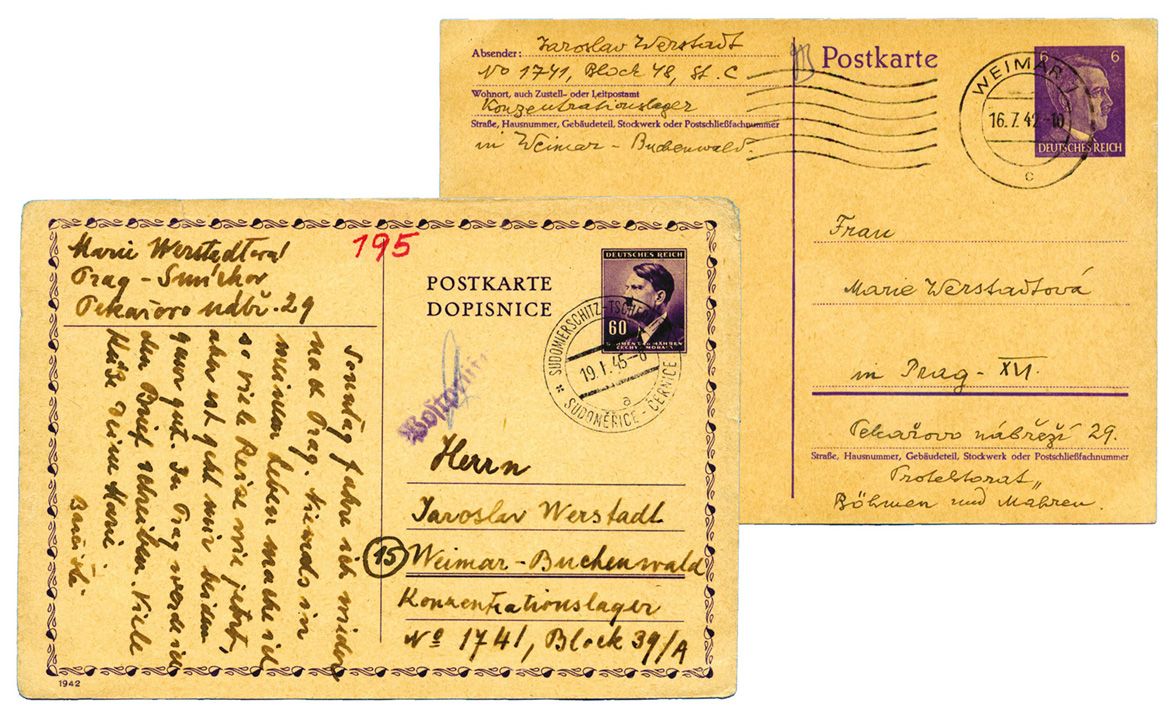 Absender: Jaroslav Werstadt
No 1741, Block 48, St. C
Wohnort, auch Zustell- oder Leitpostamt
Konzentrationslager
Straße, Hausnummer, Gebäudeteil, Stockwerk oder Postschließfachnummer
in Weimar - Buchenwald.
Postkarte
6 6
DEUTSCHES REICH
WEIMAR 1
16.7.42-10
c
Frau
Marie Werstadtová
in Prag - XVI.
Pekařovo nábřeží 29.
Straße, Hausnummer, Gebäudeteil, Stockwerk oder Postschließfachnummer
Protektorat
Böhmen und Mähren.
Marie Werstadtová
Prag - Smíchov
Pekařovo nábř. 29
195
POSTKARTE
DOPISNICE
DEUTSCHES REICH
60
BÖHMEN U. MÄHREN
ČECHY A MORAVA
SUDOMIERSCHITZ-TSCHERN
19.I.45-8
a
SUDOMĚŘICE - ČERNICE
Sonntag fahre ich wieder
nach Prag. Niemals in
meinem Leben mache ich
so viele Reise wie jetzt,
aber ist geht mir beiden
ganz gut. In Prag werde ich
den Brief schreiben. Viele
Küße Deine Marie
Herrn
Jaroslav Werstadt
15 Weimar - Buchenwald
Konzentrationslager
No 1741, Block 39/A
1942